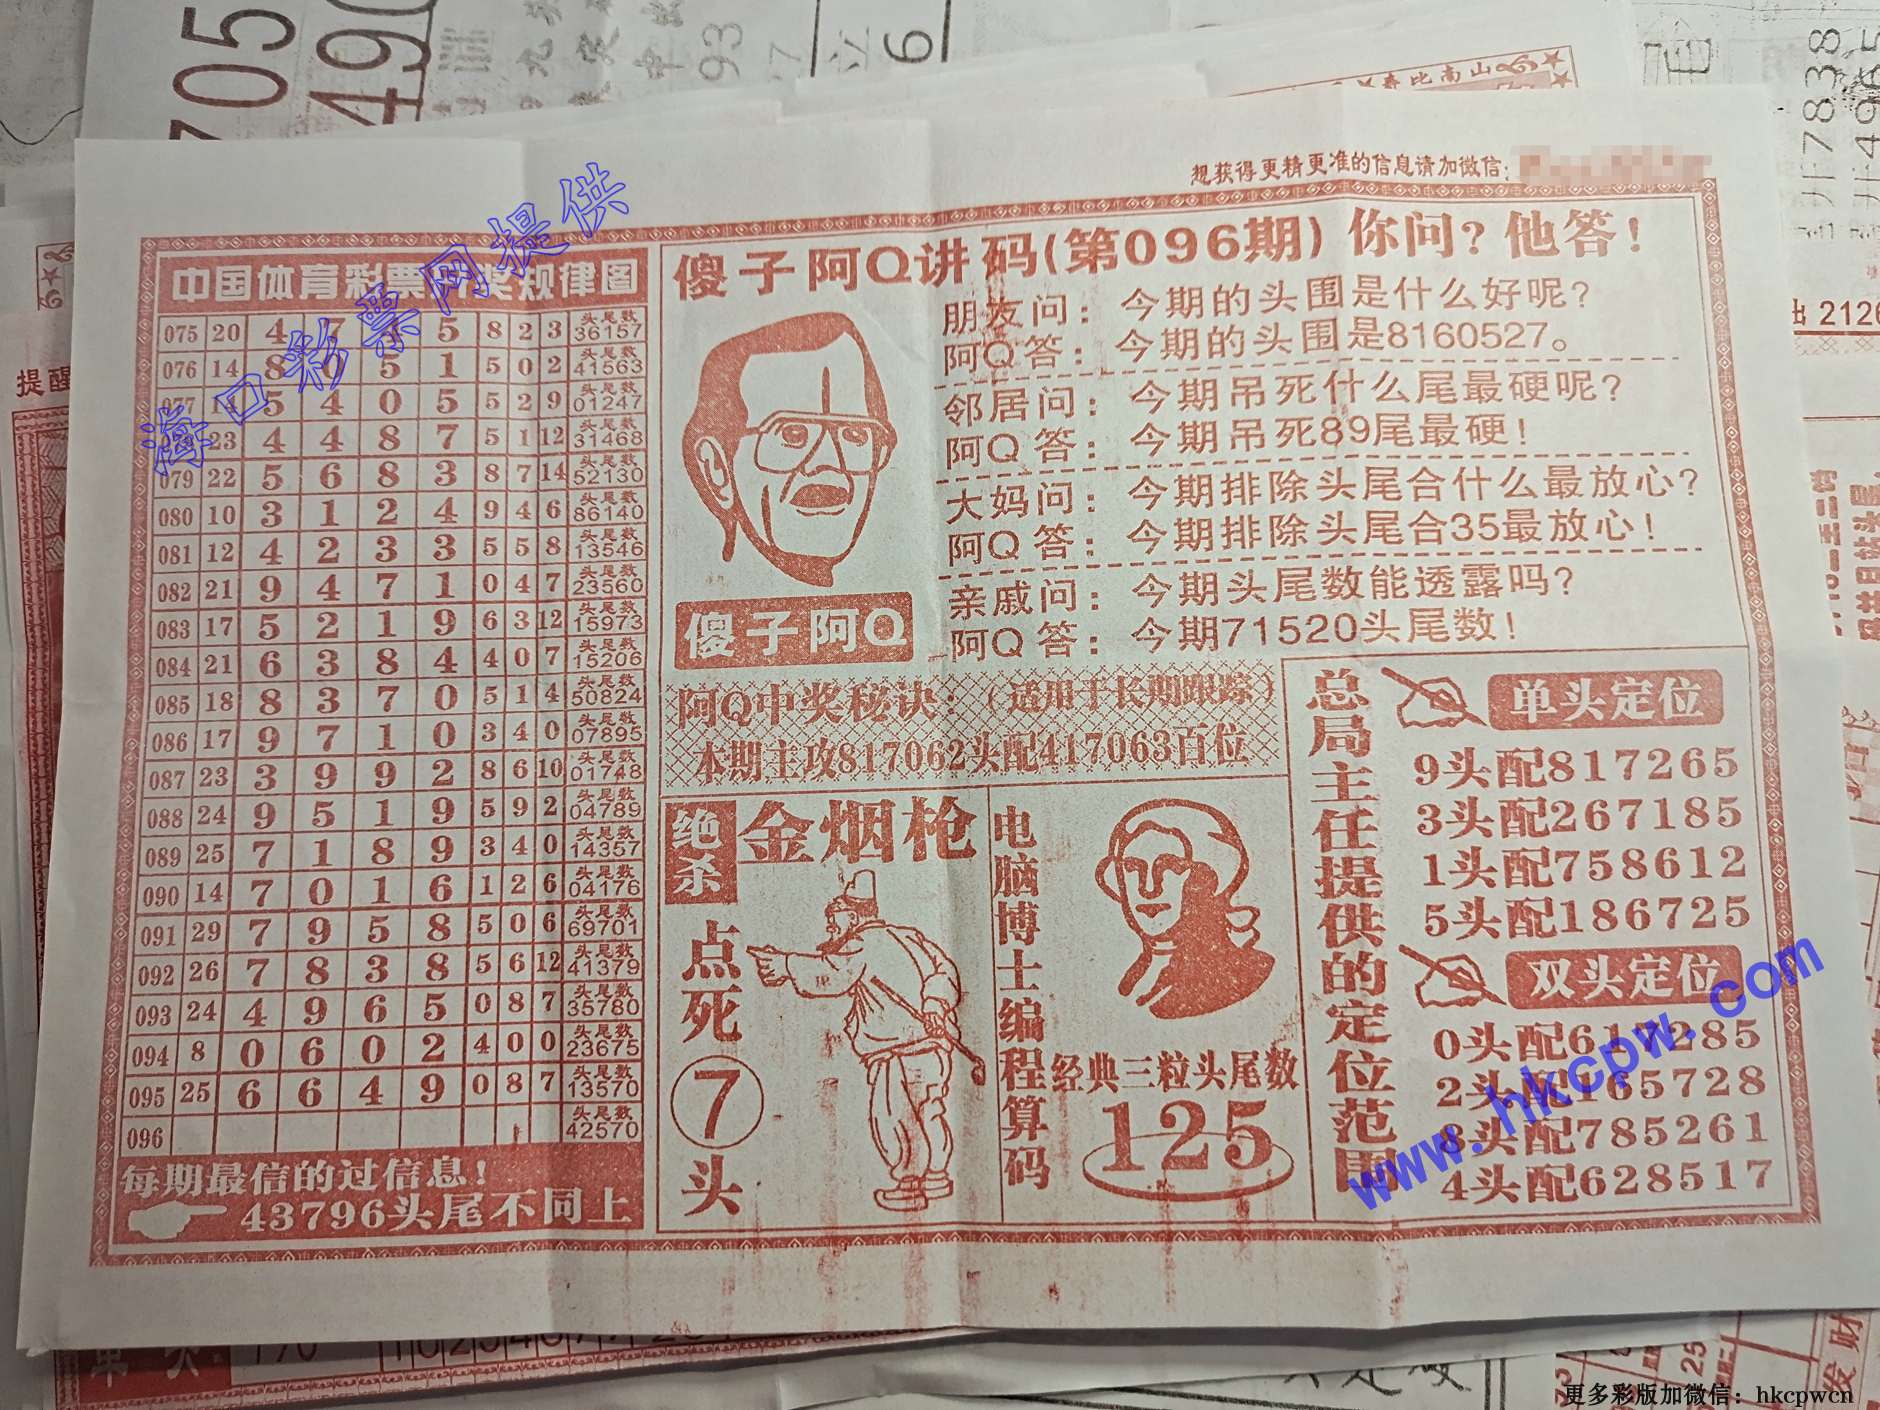 想获得更精更准的信息请加微信:
中国体育彩票开奖规律图
075 20 4 7 4 5 8 2 3 头尾数 36157
076 14 8 0 5 1 5 0 2 头尾数 41563
077 14 5 4 0 5 5 2 9 头尾数 01247
23 4 4 8 7 5 1 12 头尾数 31468
079 22 5 6 8 3 8 7 14 头尾数 52130
080 10 3 1 2 4 9 4 6 头尾数 86140
081 12 4 2 3 3 5 5 8 头尾数 13546
082 21 9 4 7 1 0 4 7 头尾数 23560
083 17 5 2 1 9 6 3 12 头尾数 15973
084 21 6 3 8 4 4 0 7 头尾数 15206
085 18 8 3 7 0 5 1 4 头尾数 50824
086 17 9 7 1 0 3 4 0 头尾数 07895
087 23 3 9 9 2 8 6 10 头尾数 01748
088 24 9 5 1 9 5 9 2 头尾数 04789
089 25 7 1 8 9 3 4 0 头尾数 14357
090 14 7 0 1 6 1 2 6 头尾数 04176
091 29 7 9 5 8 5 0 6 头尾数 69701
092 26 7 8 3 8 5 6 12 头尾数 41379
093 24 4 9 6 5 0 8 7 头尾数 35780
094 8 0 6 0 2 4 0 0 头尾数 23675
095 25 6 6 4 9 0 8 7 头尾数 13570
096 头尾数 42570
每期最信的过信息!
43796头尾不同上
傻子阿Q讲码(第096期)你问?他答!
朋友问:今期的头围是什么好呢?
阿Q答:今期的头围是8160527。
邻居问:今期吊死什么尾最硬呢?
阿Q答:今期吊死89尾最硬!
大妈问:今期排除头尾合什么最放心?
阿Q答:今期排除头尾合35最放心!
亲戚问:今期头尾数能透露吗?
阿Q答:今期71520头尾数!
傻子阿Q
阿Q中奖秘诀:(适用于长期跟踪)
本期主攻817062头配417063百位
绝杀
金烟枪
点死
7
头
电脑博士编程算码
经典三粒头尾数
125
总局主任提供的定位范围
单头定位
9头配817265
3头配267185
1头配758612
5头配186725
双头定位
0头配617285
2头配165728
8头配785261
4头配628517
海口彩票网提供
www.hkcpw.com
更多彩版加微信:hkcpwcn
705
490
提醒
出 2126
开7838
开4965
发财